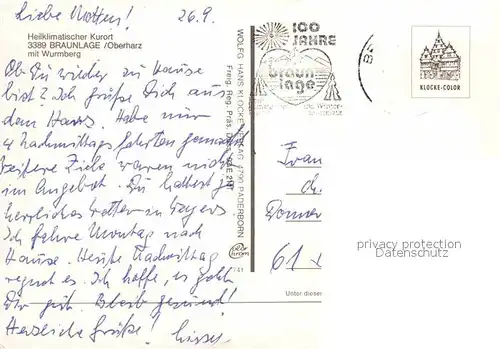 Liebe Motten! 26.9.
Heilklimatischer Kurort
3389 BRAUNLAGE /Oberharz
mit Wurmberg
Ob Du wieder zu Hause
bist? Ich grüße Dich aus
dem Harz. Habe nur
4 Nachmittagsfahrten gemacht
weitere Ziele waren nicht
im Angebot. Du hattest ja
herrliches Wetter in
Ich fahre Montag nach
Hause. Heute Nachmittag
regnet es. Ich hoffe, es geht
Dir gut. Bleib gesund!
Herzliche Grüße!
WOLFG. HANS KLOCKE VERLAG 4790 PADERBORN
Freig. Reg. Präs.
741
100
JAHRE
braun
lage
KLOCKE-COLOR
Frau
Ch.
Donner
61
privacy protection
Datenschutz
Unter diese